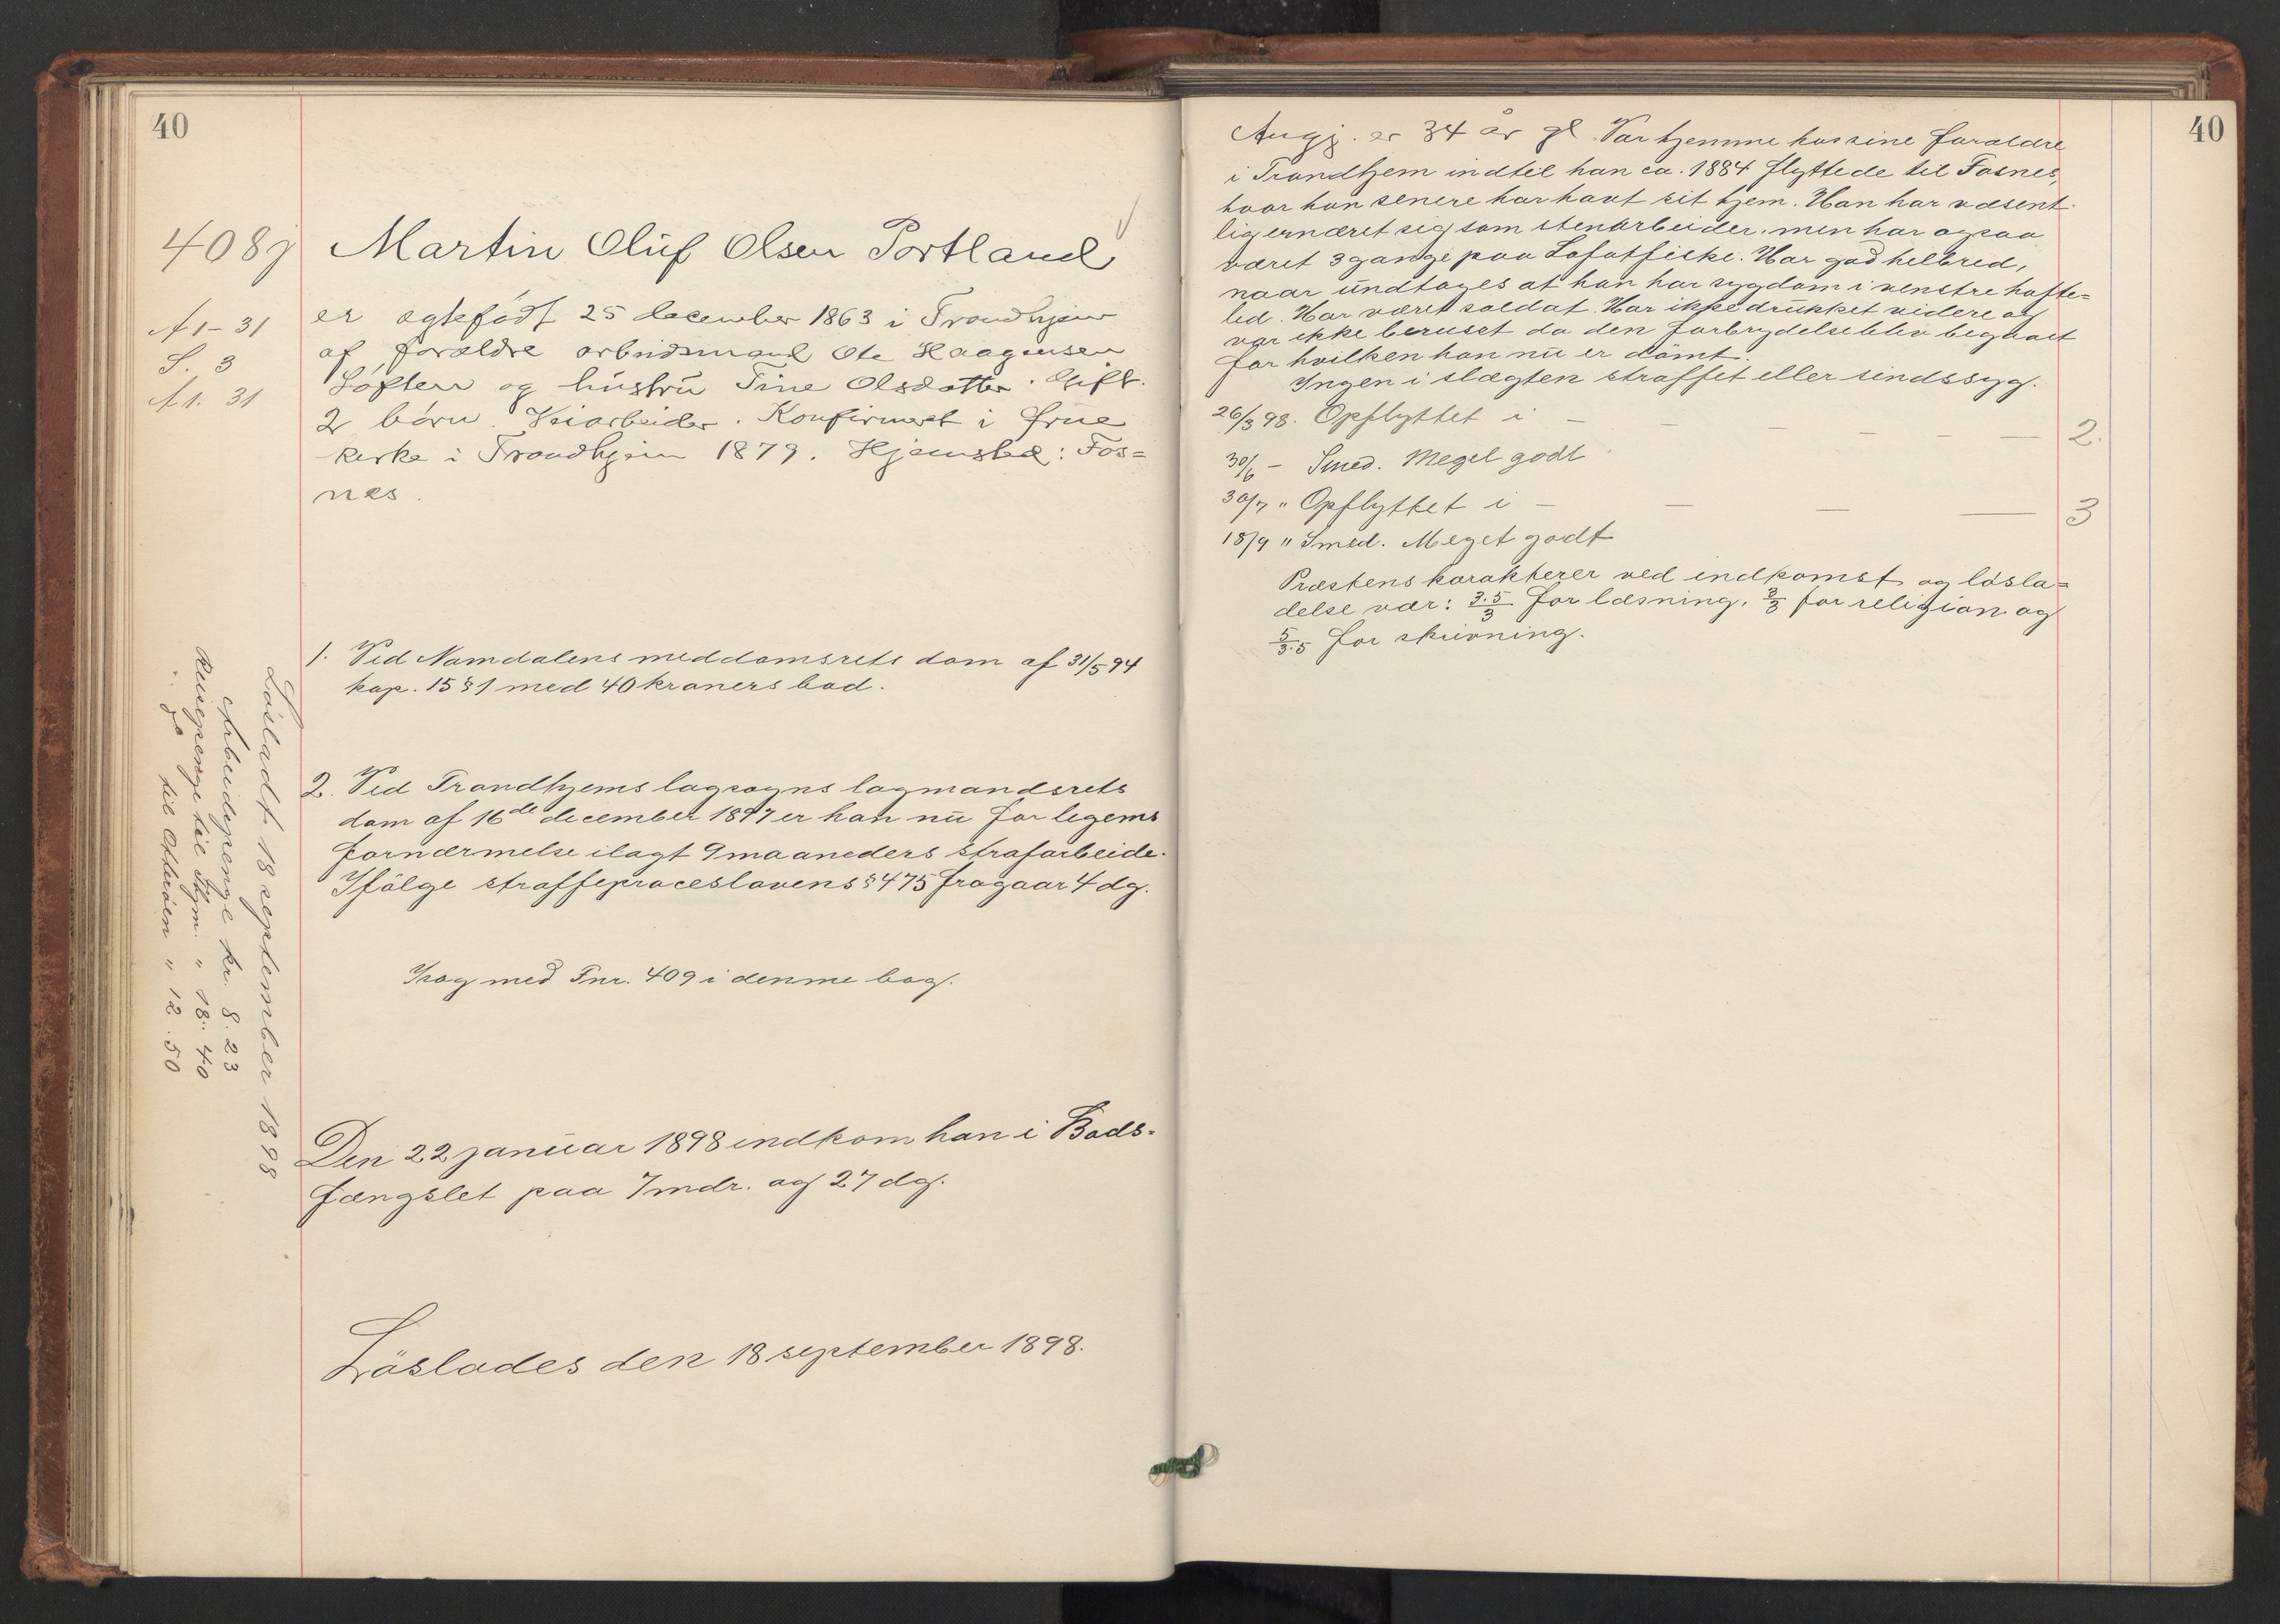 40
408j
A 1 - 31
S. 3
A 1. 31
Martin Oluf Olsen Portland
er ægtefödt 25 december 1863 i Trondhjem
af forældre arbeidsmand Ole Haagensen
Löften og hustru Tine Olsdatter. Gift.
2 börn. Veiarbeider. Konfirmert i Frue
kirke i Trondhjem 1879. Hjemsted: Fos=
nes.
1. Ved Namdalens meddomsrets dom af 31/5 94
kap. 15 § 1 med 40 kroners bod.
2. Ved Trondhjems lagsogns lagmandsrets
dom af 16de december 1897 er han nu for legems
fornærmelse ilagt 9 maaneders strafarbeide.
Ifölge straffeproceslovens § 475 fragaar 4 dg.
Isog med Fnr. 409 i denne bog.
Den 22 januar 1898 indkom han i Bods-
fængslet paa 7 mdr. og 27 dg.
Löslades den 18 september 1898.
Lösladt 18 september 1898
Arbeidspenge kr. 8. 23
Reisepenge til Thjm. " 18. 40
do til Otterøen " 12. 50
40
Angj. er 34 år gl. Var hjemme hos sine forældre
i Trondhjem indtil han ca. 1884 flyttede til Fosnes,
hvor han senere har havt sit hjem. Han har væsent-
lig ernæret sig som stenarbeider, men har ogsaa
været 3 gange paa Lofotfiske. Har god helbred,
naar undtages at han har sygdom i venstre hofte=
led. Har været soldat. Har ikke drukket videre og
var ikke beruset da den forbrydelse blev begaaet
for hvilken han nu er dömt.
Ingen i slægten straffet eller sindssyg.
26/3 98. Opflyttet i - - - - - - 2.
30/6 - Smed. Meget godt
30/7 " Opflyttet i - - - - 3
18/9 " Smed. Meget godt
Præstens karakterer ved indkomst og lösla=
delse var: 3.5/3 for læsning, 3/3 for religion og
5/3.5 for skrivning.